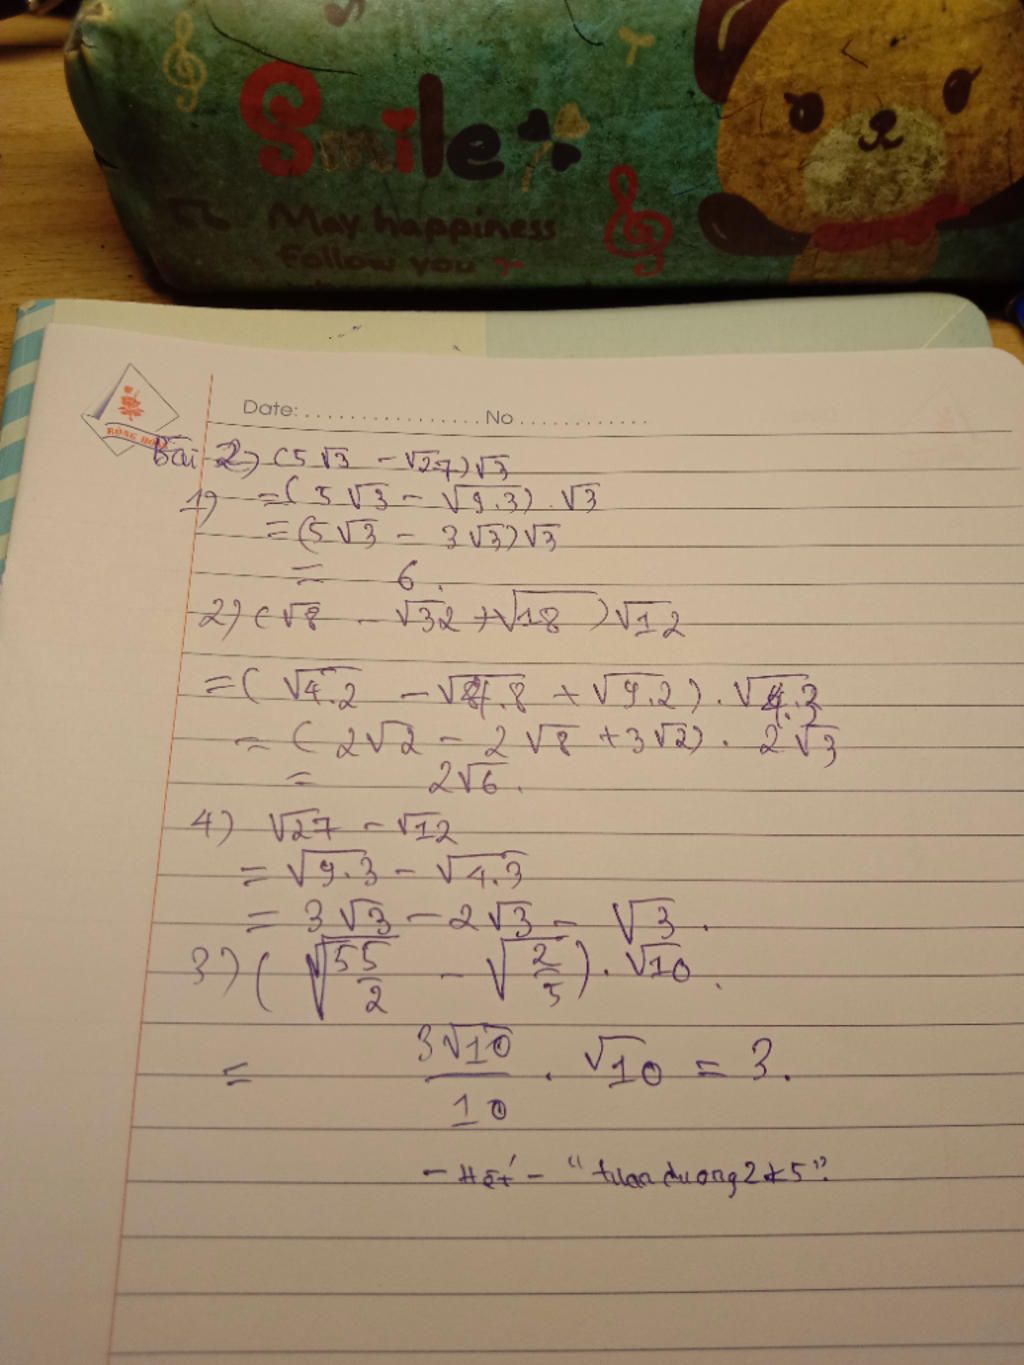 Smile
May happiness
Follow you
Date: .................. No ..............
RỒNG
Bài 2) (5√3 - √27)√3
1) = (5√3 - √9.3) . √3
= (5√3 - 3√3)√3
= 6.
2) (√8 - √32 + √18)√12
= (√4.2 - √4.8 + √9.2) . √4.3
= (2√2 - 2√8 + 3√2) . 2√3
= 2√6.
4) √27 - √12
= √9.3 - √4.3
= 3√3 - 2√3 = √3.
3) (√55/2 - √2/5) . √10.
= 3√10/10 . √10 = 3.
- Hết - "tuanduong2k5".